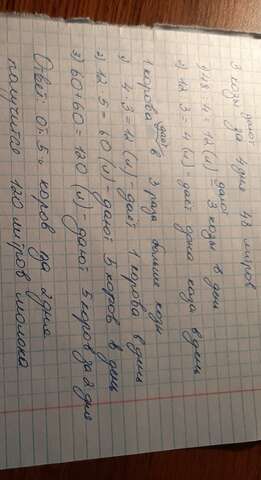 3 козы дают за 4 дня 48 литров
1) 48:4=12(л) дают 3 козы в день
2) 12:3=4(л)-даёт одна коза в день
1 корова даёт в 3 раза больше козы
1) 4·3=12(л)-даёт 1 корова в день
2) 12·5=60(л)-дают 5 коров в день
3) 60+60=120(л)-дают 5 коров за 2 дня
Ответ: от 5 коров за 2 дня
получится 120 литров молока